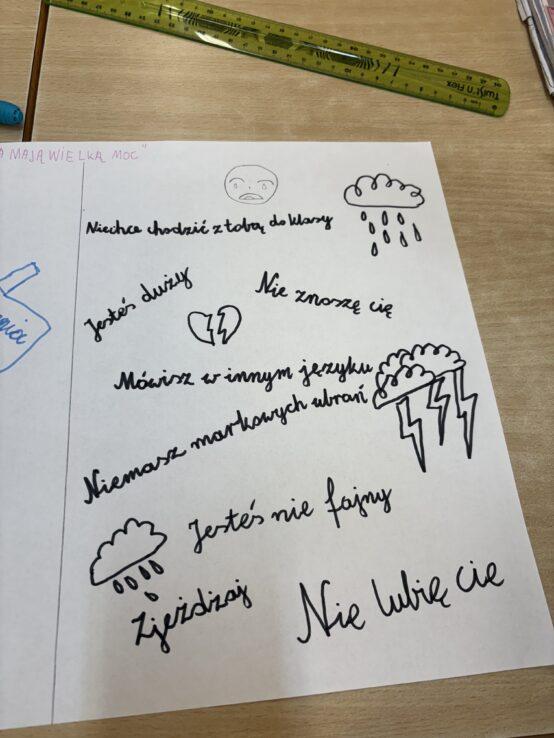 Twist'n Flex
A MAJĄ WIELKĄ MOC"
Niechce chodzić z tobą do klasy
Jesteś duży
Nie znoszę cię
Mówisz w innym języku
Niemasz markowych ubrań
Jesteś nie fajny
Zjeżdzaj
Nie lubię cię